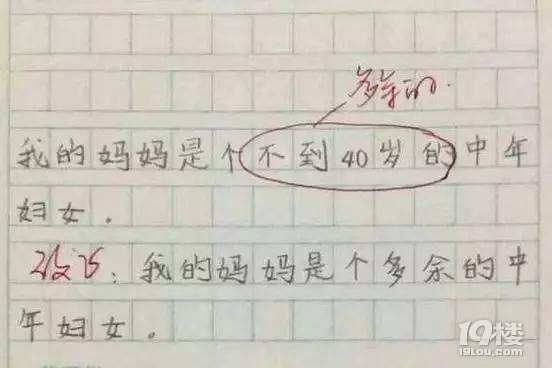 多余的.
我的妈妈是个不到40岁的中年
妇女.
改正:我的妈妈是个多余的中
年妇女.
19楼
19lou.com